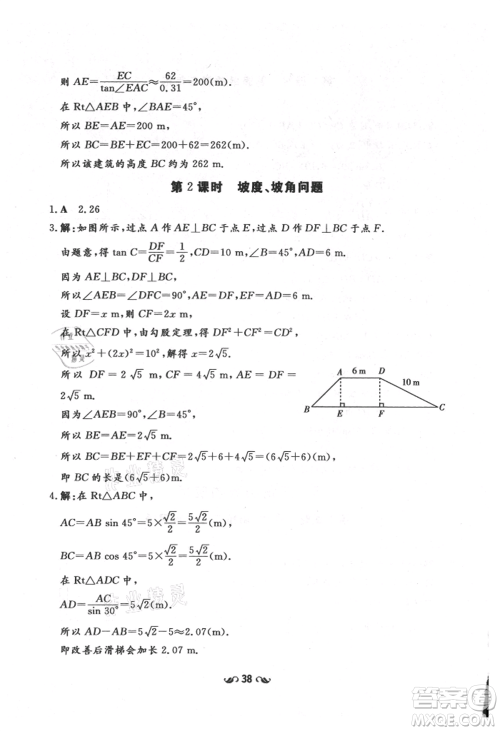 则 AE=EC/tan∠EAC≈62/0.31=200(m).
在 Rt△ABE 中,∠BAE=45°,
所以 BE=AE=200 m.
所以 BC=BE+CE=200+62=262(m).
所以该建筑的高度 BC 约为 262 m.
第 2 课时 坡度、坡角问题
1. A 2. 26
3. 解:如图所示,过点 A 作 AE⊥BC 于点 E,过点 D 作 DF⊥BC 于点 F.
由题意,得 tan C=DF/CF=1/2,
因为 AE⊥BC,DF⊥BC,
所以 ∠AEB=∠DFC=90°,AE=DF.
设 DF=x m,则 CF=2x m.
在 Rt△CFD 中,由勾股定理,得 DF²+CF²=CD²,
所以 x²+(2x)²=10²,解得 x=2√5.
所以 DF=2√5 m,CF=4√5 m,AE=DF=
2√5 m.
因为 ∠AEB=90°,∠B=45°,
所以 BE=AE=2√5 m.
所以 BC=BE+EF+CF=2√5+6+4√5=6√5+6(m),
即 BC 的长是(6√5+6)m.
A 6 m D
10 m
B E F C
4. 解:在 Rt△ABC 中,
AC=AB sin 45°=5×√2/2=5√2/2(m),
BC=AB cos 45°=5×√2/2=5√2/2(m).
在 Rt△ADC 中,
AD=AC/sin 30°=5√2(m),
所以 AD-AB=5√2-5≈2.07(m).
即改善后滑梯会加长 2.07 m.
38
作业精灵
作业精灵
答案圈
MXQE.COM